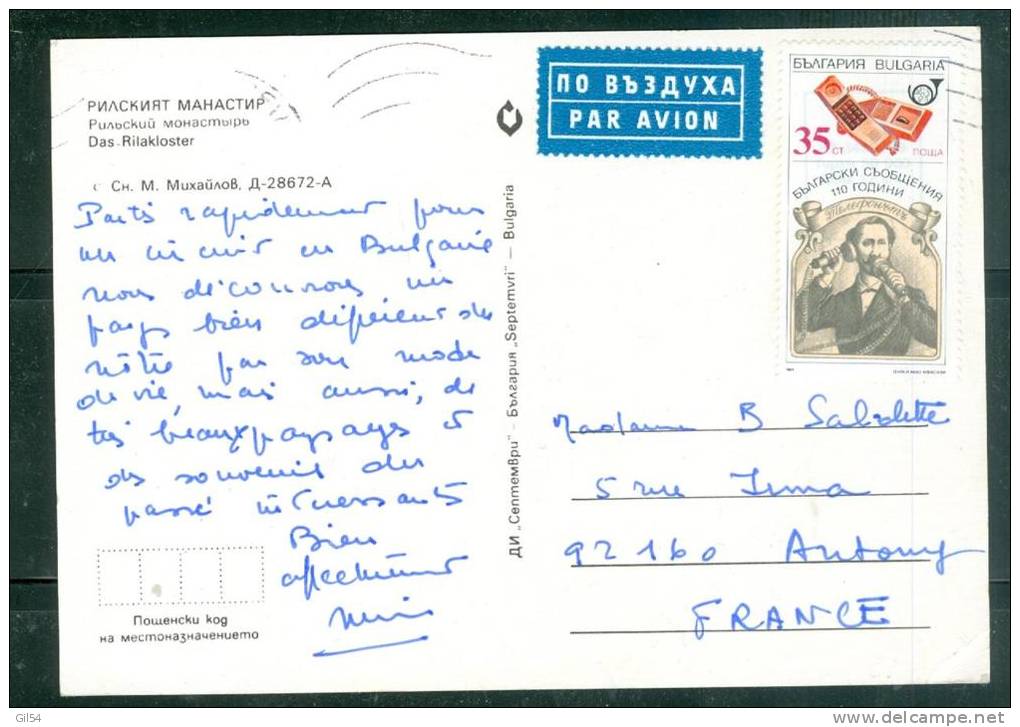 РИЛСКИЯТ МАНАСТИР
Рильский монастырь
Das Rilakloster
Сн. М. Михайлов, Д-28672-А
Partis rapidement pour
un circuit en Bulgarie
nous découvrons un
pays bien différent du
nôtre par son mode
de vie, mais aussi, de
très beaux paysages et
des souvenirs du
passé intéressants
Bien
affectueusement
Пощенски код
на местоназначението
ДИ „Септември" — България „Septemvri" — Bulgaria
ПО ВЪЗДУХА
PAR AVION
БЪЛГАРИЯ BULGARIA
35 СТ ПОЩА
БЪЛГАРСКИ СЪОБЩЕНИЯ
110 ГОДИНИ
Телефонътъ
Madame B
5 rue
92160 Antony
FRANCE
Gil54
www.delcampe.net